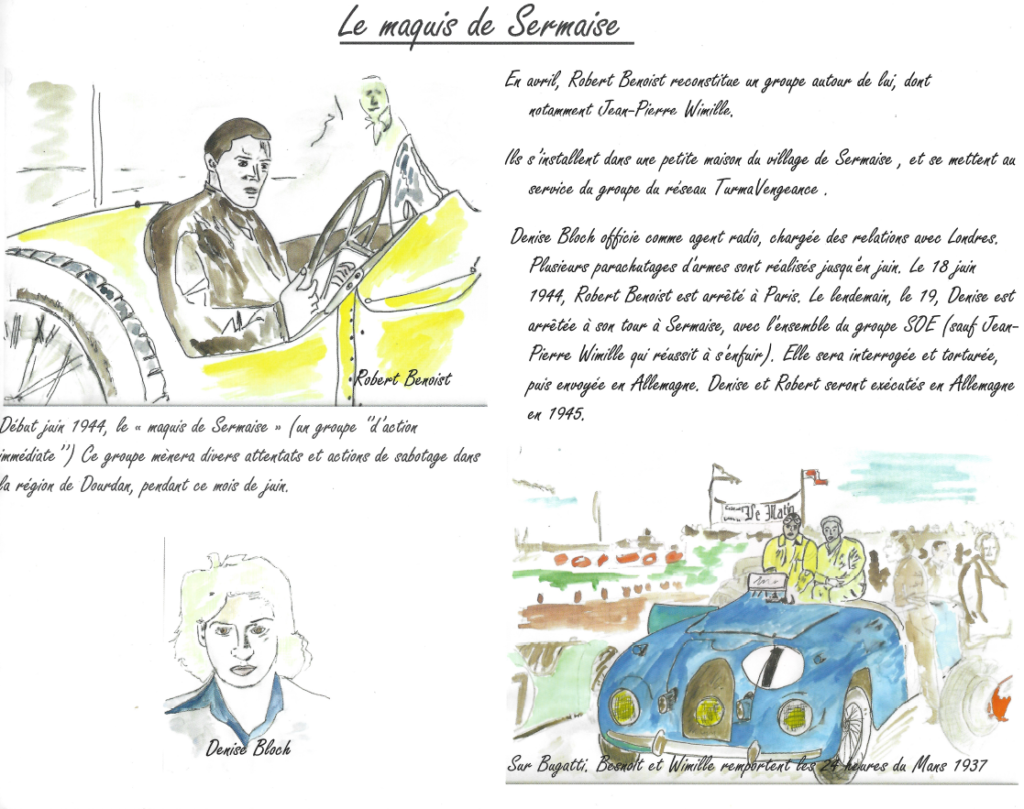 Le maquis de Sermaise
En avril, Robert Benoist reconstitue un groupe autour de lui, dont
notamment Jean-Pierre Wimille.
Ils s'installent dans une petite maison du village de Sermaise , et se mettent au
service du groupe du réseau TurmaVengeance .
Denise Bloch officie comme agent radio, chargée des relations avec Londres.
Plusieurs parachutages d'armes sont réalisés jusqu'en juin. Le 18 juin
1944, Robert Benoist est arrêté à Paris. Le lendemain, le 19, Denise est
arrêtée à son tour à Sermaise, avec l'ensemble du groupe SOE (sauf Jean-
Pierre Wimille qui réussit à s'enfuir). Elle sera interrogée et torturée,
puis envoyée en Allemagne. Denise et Robert seront exécutés en Allemagne
en 1945.
Robert Benoist
Début juin 1944, le « maquis de Sermaise » (un groupe "d'action
immédiate") Ce groupe mènera divers attentats et actions de sabotage dans
la région de Dourdan, pendant ce mois de juin.
Denise Bloch
Le Matin
1
Sur Bugatti. Besnoit et Wimille remportent les 24 heures du Mans 1937